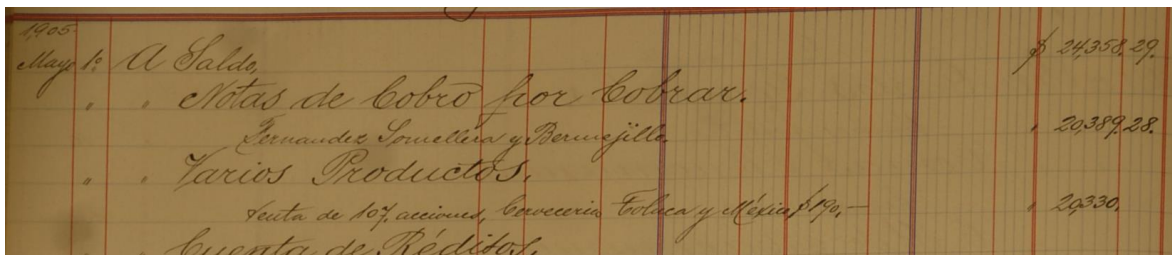 1905
Mayo 1º A Saldo, $ 24,358.29.
" " Notas de Cobro por Cobrar.
Fernandez Somellera y Bermejillo. " 20,389.28.
" " Varios Productos.
Venta de 107 acciones, Cerveceria Toluca y México $190.— " 20,330.
" " Cuenta de Réditos.